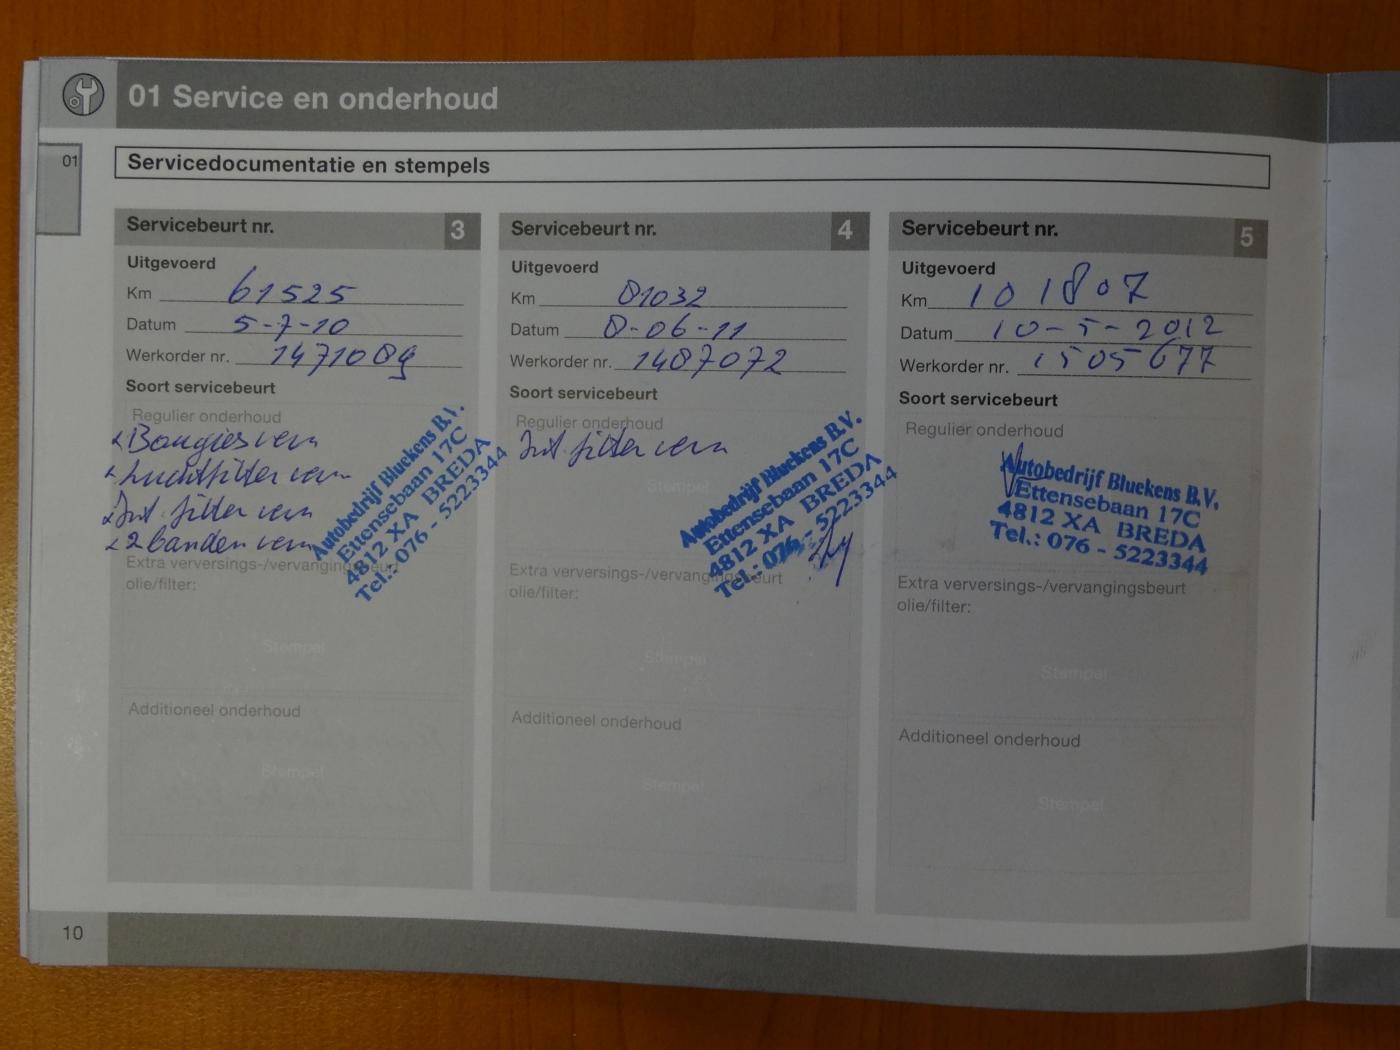 01 Service en onderhoud
01
Servicedocumentatie en stempels
Servicebeurt nr. 3
Uitgevoerd
Km 61525
Datum 5-7-10
Werkorder nr. 1471089
Soort servicebeurt
Regulier onderhoud
Bougies vern
Luchtfilter vern
Int. filter vern
2 banden vern
Autobedrijf Bluekens B.V.
Ettensebaan 17C
4812 XA BREDA
Tel.: 076 - 5223344
Extra verversings-/vervangingsbeurt
olie/filter:
Stempel
Additioneel onderhoud
Stempel
Servicebeurt nr. 4
Uitgevoerd
Km 81032
Datum 8-06-11
Werkorder nr. 1487072
Soort servicebeurt
Regulier onderhoud
Int. filter vern
Stempel
Autobedrijf Bluekens B.V.
Ettensebaan 17C
4812 XA BREDA
Tel.: 076 - 5223344
Extra verversings-/vervangingsbeurt
olie/filter:
Stempel
Additioneel onderhoud
Stempel
Servicebeurt nr. 5
Uitgevoerd
Km 101807
Datum 10-5-2012
Werkorder nr. 1505677
Soort servicebeurt
Regulier onderhoud
Autobedrijf Bluekens B.V.
Ettensebaan 17C
4812 XA BREDA
Tel.: 076 - 5223344
Extra verversings-/vervangingsbeurt
olie/filter:
Stempel
Additioneel onderhoud
Stempel
10